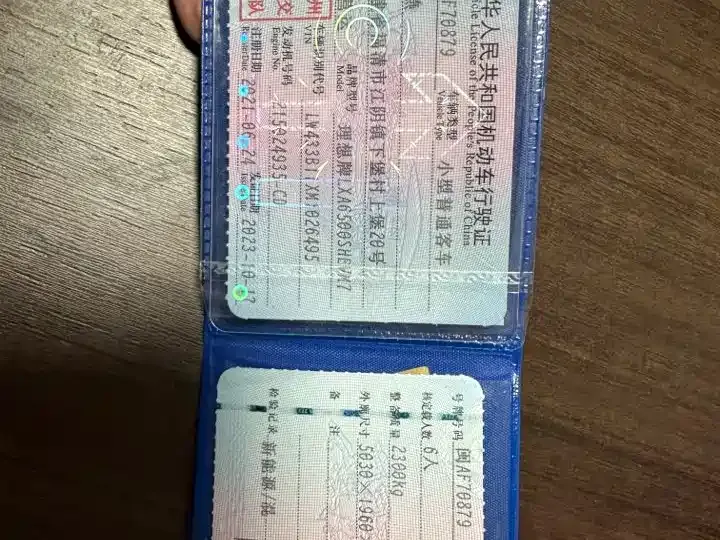 华人民共和国机动车行驶证
cle License of the People's Republic of China
F70879
车辆类型
Vehicle Type
小型普通客车
福清市江阴镇下堡村上堡20号
品牌型号
Model
理想牌LXA6500SHEVM7
车辆识别代号
VIN
发动机号码
Engine No.
215024935-CD
注册日期
Register Date
2021-06-24
发证日期
Issue Date
2023-10-12
州
交
队
号牌号码
闽AF70879
核定载人数
6人
整备质量
2300kg
外廓尺寸
5030×1960
备 注
检验记录
新能源/混